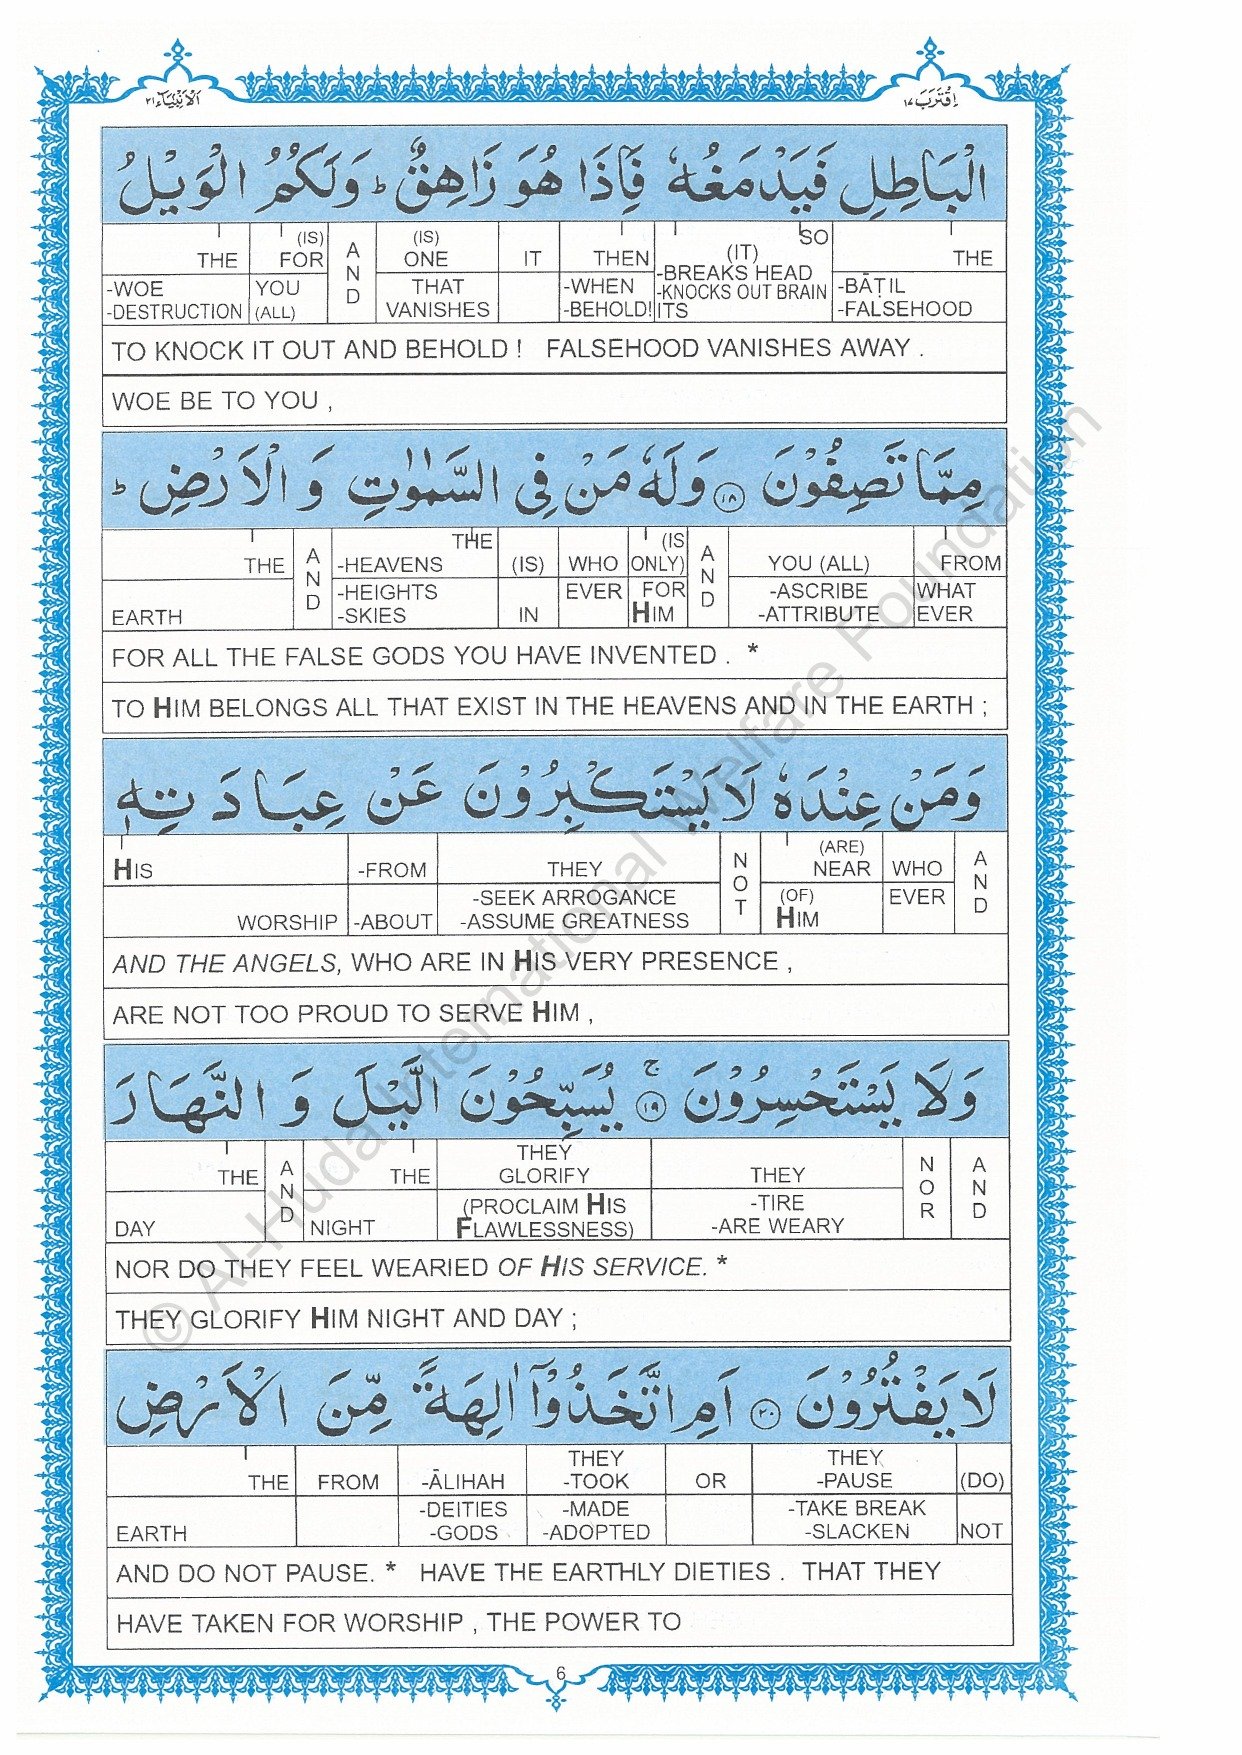 اَلْاَنْبِيَآء ٢١
اِقْتَرَبَ ١٧
الْبَاطِلِ فَيَدْمَغُهٗ فَاِذَا هُوَ زَاهِقٌ ؕ وَلَكُمُ الْوَيْلُ
THE (IS) FOR AND (IS) ONE IT THEN (IT) SO THE
-WOE -DESTRUCTION YOU (ALL) THAT VANISHES -WHEN -BEHOLD! -BREAKS HEAD -KNOCKS OUT BRAIN ITS -BĀṬIL -FALSEHOOD
TO KNOCK IT OUT AND BEHOLD ! FALSEHOOD VANISHES AWAY .
WOE BE TO YOU ,
مِمَّا تَصِفُوْنَ ۝١٨ وَلَهٗ مَنْ فِى السَّمٰوٰتِ وَ الْاَرْضِ ؕ
THE AND THE -HEAVENS (IS) WHO (IS ONLY) AND YOU (ALL) FROM
EARTH -HEIGHTS -SKIES IN EVER FOR HIM -ASCRIBE -ATTRIBUTE WHAT EVER
FOR ALL THE FALSE GODS YOU HAVE INVENTED . *
TO HIM BELONGS ALL THAT EXIST IN THE HEAVENS AND IN THE EARTH ;
وَمَنْ عِنْدَهٗ لَا يَسْتَكْبِرُوْنَ عَنْ عِبَادَتِهٖ
HIS -FROM THEY NOT (ARE) NEAR WHO AND
WORSHIP -ABOUT -SEEK ARROGANCE -ASSUME GREATNESS (OF) HIM EVER
AND THE ANGELS, WHO ARE IN HIS VERY PRESENCE ,
ARE NOT TOO PROUD TO SERVE HIM ,
وَلَا يَسْتَحْسِرُوْنَ ۚ ۝١٩ يُسَبِّحُوْنَ الَّيْلَ وَ النَّهَارَ
THE AND THE THEY GLORIFY THEY NOR AND
DAY NIGHT (PROCLAIM HIS FLAWLESSNESS) -TIRE -ARE WEARY
NOR DO THEY FEEL WEARIED OF HIS SERVICE. *
THEY GLORIFY HIM NIGHT AND DAY ;
لَا يَفْتُرُوْنَ ۝٢٠ اَمِ اتَّخَذُوْٓا اٰلِهَةً مِّنَ الْاَرْضِ
THE FROM -ĀLIHAH THEY -TOOK OR THEY -PAUSE (DO)
EARTH -DEITIES -GODS -MADE -ADOPTED -TAKE BREAK -SLACKEN NOT
AND DO NOT PAUSE. * HAVE THE EARTHLY DIETIES . THAT THEY
HAVE TAKEN FOR WORSHIP , THE POWER TO
6
© Al-Huda International Welfare Foundation